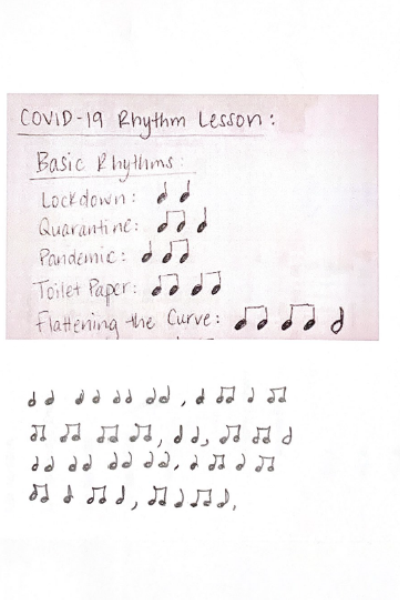 COVID-19 Rhythm Lesson:
Basic Rhythms:
Lockdown: ♩ ♩
Quarantine: ♫ ♩
Pandemic: ♩ ♫
Toilet Paper: ♫ ♫
Flattening the Curve: ♫ ♫ ♩